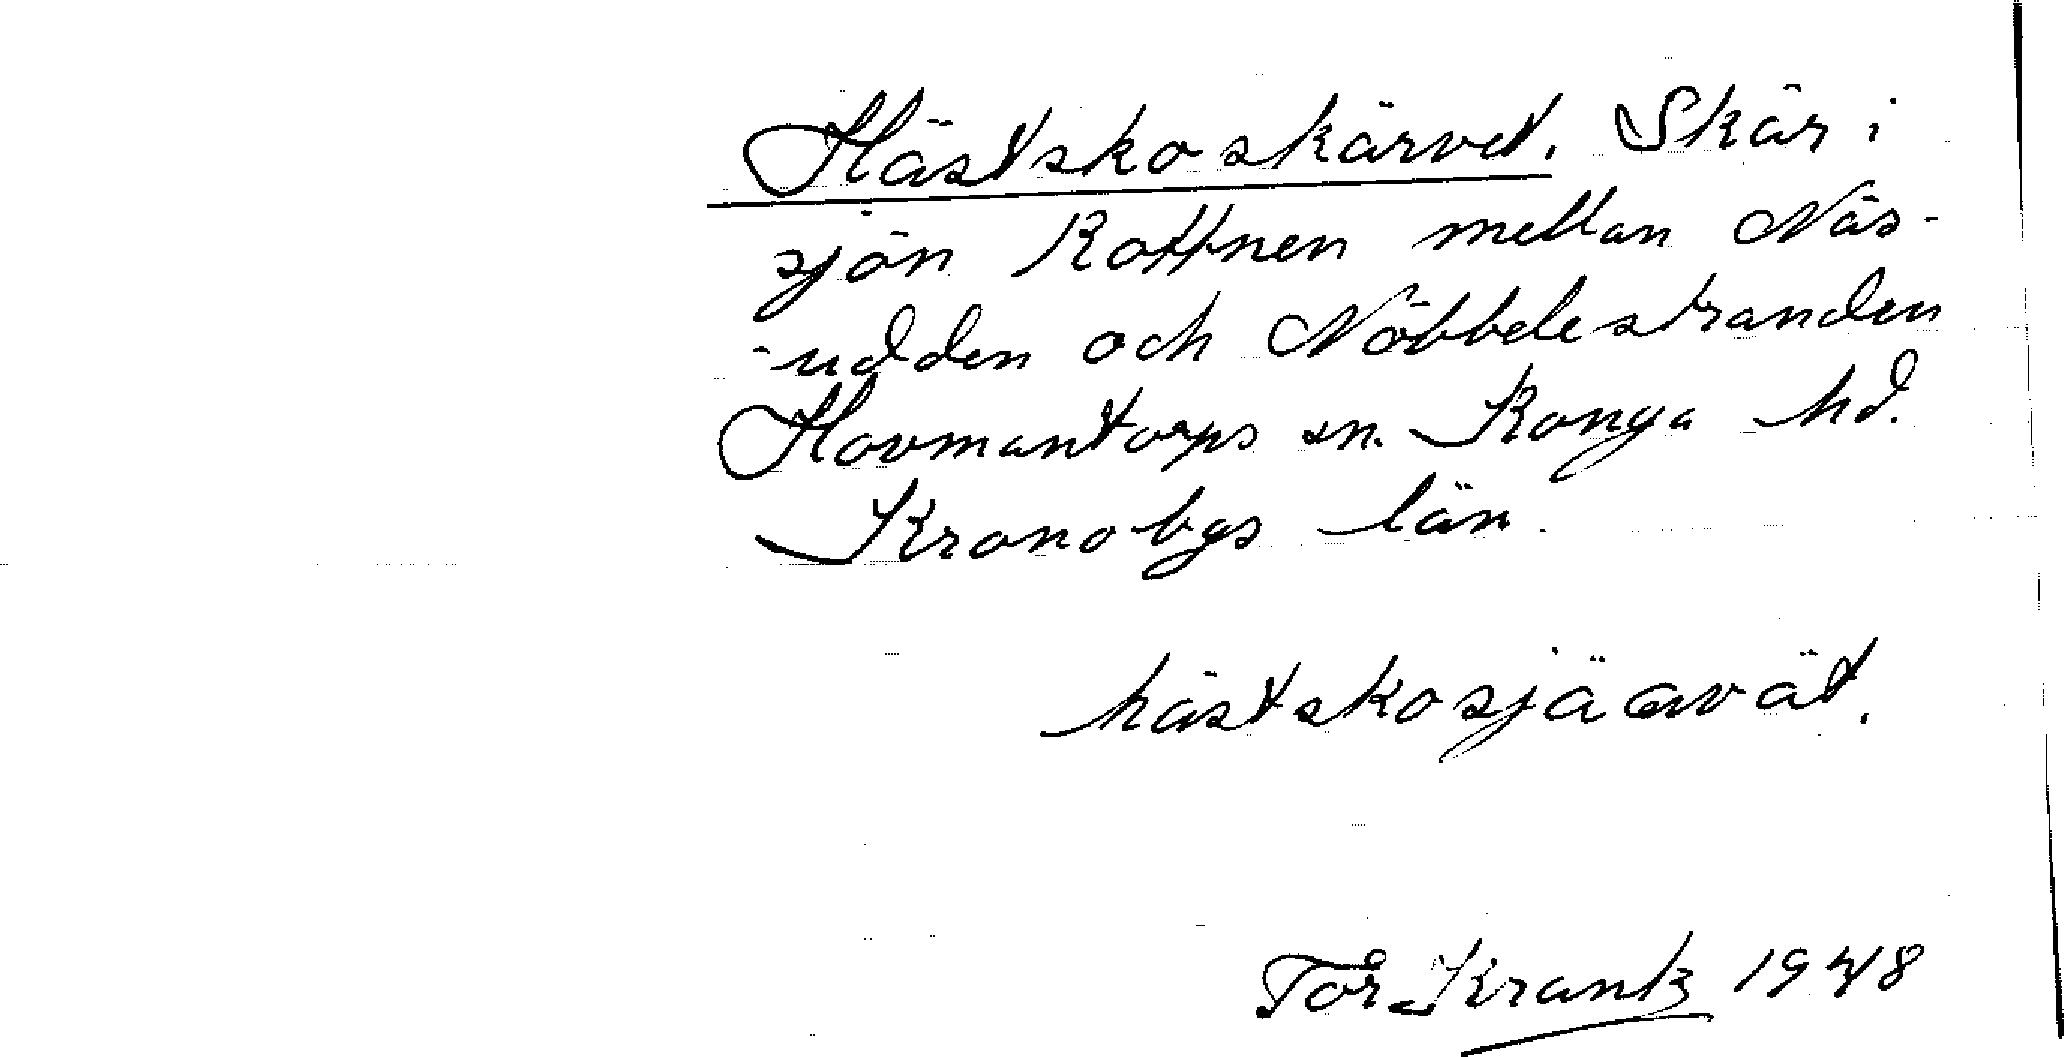 Hästskoskärvet. Skär i
sjön Rottnen mellan Näs-
-udden och Nöbbelestranden
Hovmantorps sn. Konga hd.
Kronobgs län.
hästskosjäavät.
Tor Krantz 1948